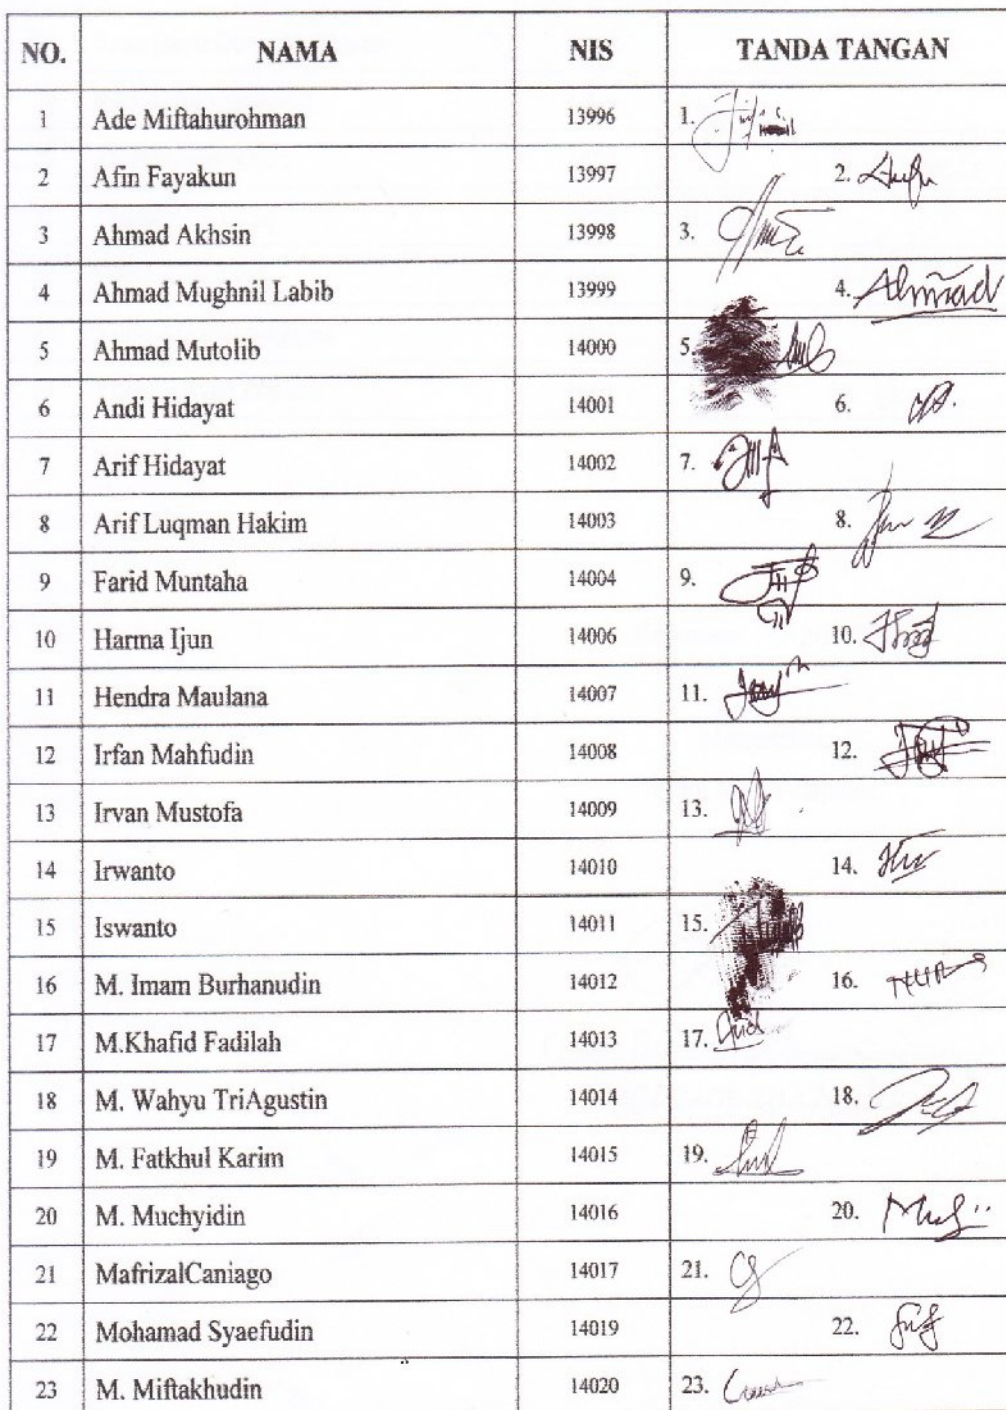 NO. NAMA NIS TANDA TANGAN
1 Ade Miftahurohman 13996 1.
2 Afin Fayakun 13997 2.
3 Ahmad Akhsin 13998 3.
4 Ahmad Mughnil Labib 13999 4. Ahmad
5 Ahmad Mutolib 14000 5.
6 Andi Hidayat 14001 6.
7 Arif Hidayat 14002 7.
8 Arif Luqman Hakim 14003 8.
9 Farid Muntaha 14004 9.
10 Harma Ijun 14006 10.
11 Hendra Maulana 14007 11.
12 Irfan Mahfudin 14008 12.
13 Irvan Mustofa 14009 13.
14 Irwanto 14010 14.
15 Iswanto 14011 15.
16 M. Imam Burhanudin 14012 16.
17 M.Khafid Fadilah 14013 17.
18 M. Wahyu TriAgustin 14014 18.
19 M. Fatkhul Karim 14015 19.
20 M. Muchyidin 14016 20.
21 MafrizalCaniago 14017 21.
22 Mohamad Syaefudin 14019 22.
23 M. Miftakhudin 14020 23.